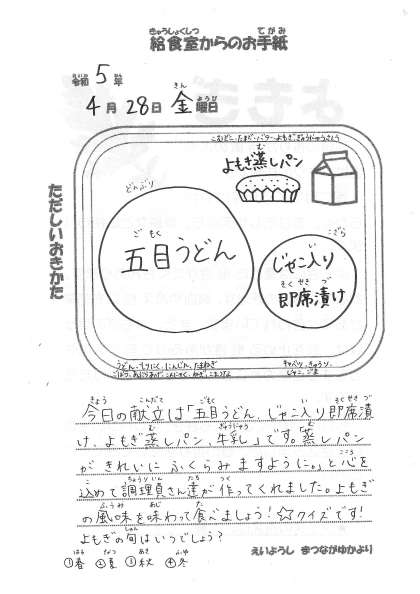 きゅうしょくしつ てがみ
給食室からのお手紙
令和5年
4月28日 金曜日
ただしいおきかた
こむぎこ・たまご・バター・よもぎ・ぎゅうにゅう・さとう
よもぎ蒸しパン
どんぶり
五目うどん
こざら
じゃこ入り
即席漬け
うどん・とりにく・にんじん・たまねぎ
ごぼう・あぶらあげ・こんにゃく・ねぎ・こまつな
キャベツ・きゅうり
じゃこ・ごま
今日の献立は「五目うどん、じゃこ入り即席漬
け、よもぎ蒸しパン、牛乳」です。「蒸しパン
がきれいにふくらみますように。」と心を
込めて調理員さん達が作ってくれました。よもぎ
の風味を味わって食べましょう!☆クイズです!
よもぎの旬はいつでしょう?
①春 ②夏 ③秋 ④冬
えいようし まつながゆかより